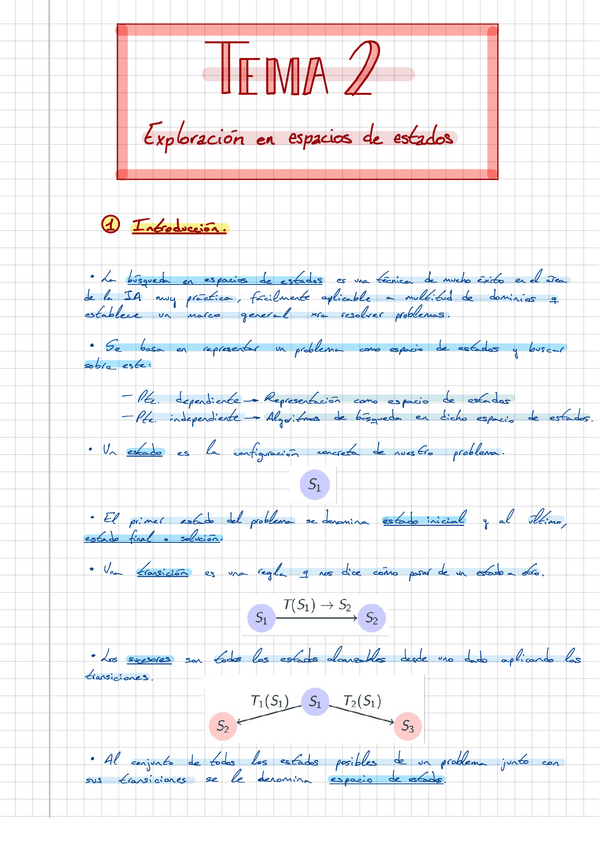 TEMA 2
Exploración en espacios de estados
1 Introducción.
• La búsqueda en espacios de estados es una técnica de mucho éxito en el área
de la IA muy práctica, fácilmente aplicable a multitud de dominios q
establece un marco general xra resolver problemas.
• Se basa en representar un problema como espacio de estados y buscar
sobre este:
– Pte. dependiente → Representación como espacio de estados
– Pte. independiente → Algoritmos de búsqueda en dicho espacio de estados.
• Un estado es la configuración concreta de nuestro problema.
S1
• El primer estado del problema se denomina estado inicial y al último,
estado final o solución.
• Una transición es una regla q nos dice cómo pasar de un estado a otro.
T(S1) → S2
S1 S2
• Los sucesores son todos los estados alcanzables desde uno dado aplicando las
transiciones.
T1(S1) S1 T2(S1)
S2 S3
• Al conjunto de todos los estados posibles de un problema junto con
sus transiciones se le denomina espacio de estados.